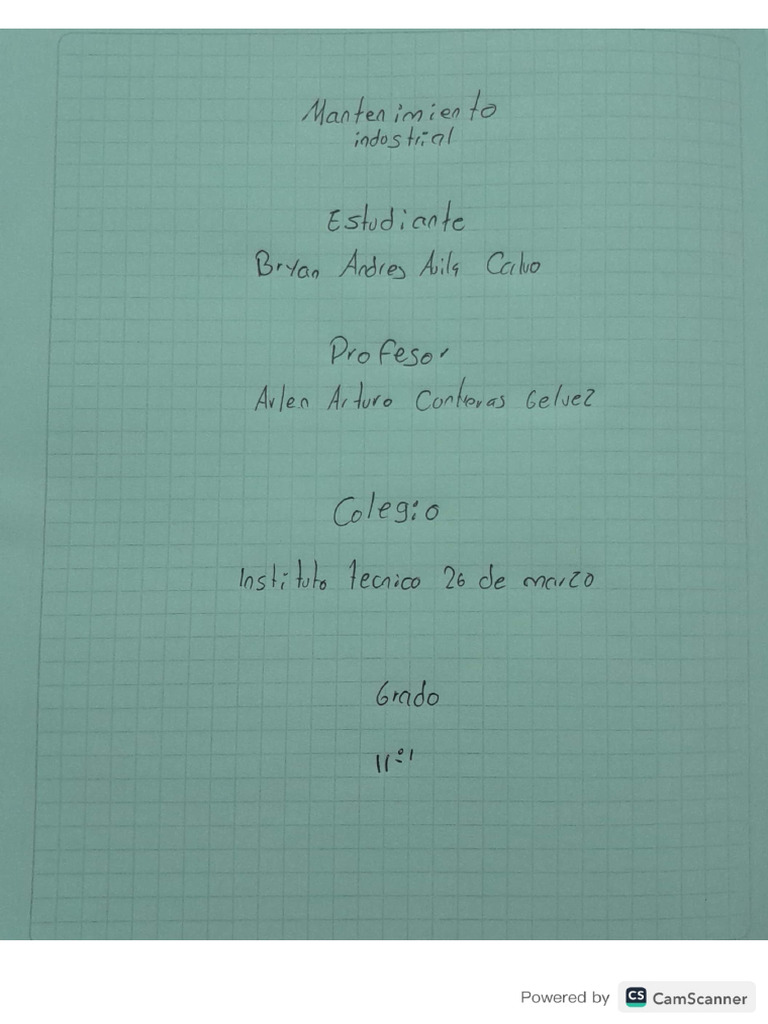 Mantenimiento
indostrial
Estudiante
Bryan Andres Avila Calvo
Profesor
Arlen Arturo Contreras Gelvez
Colegio
Instituto tecnico 26 de marzo
Grado
11º1
Powered by CS CamScanner